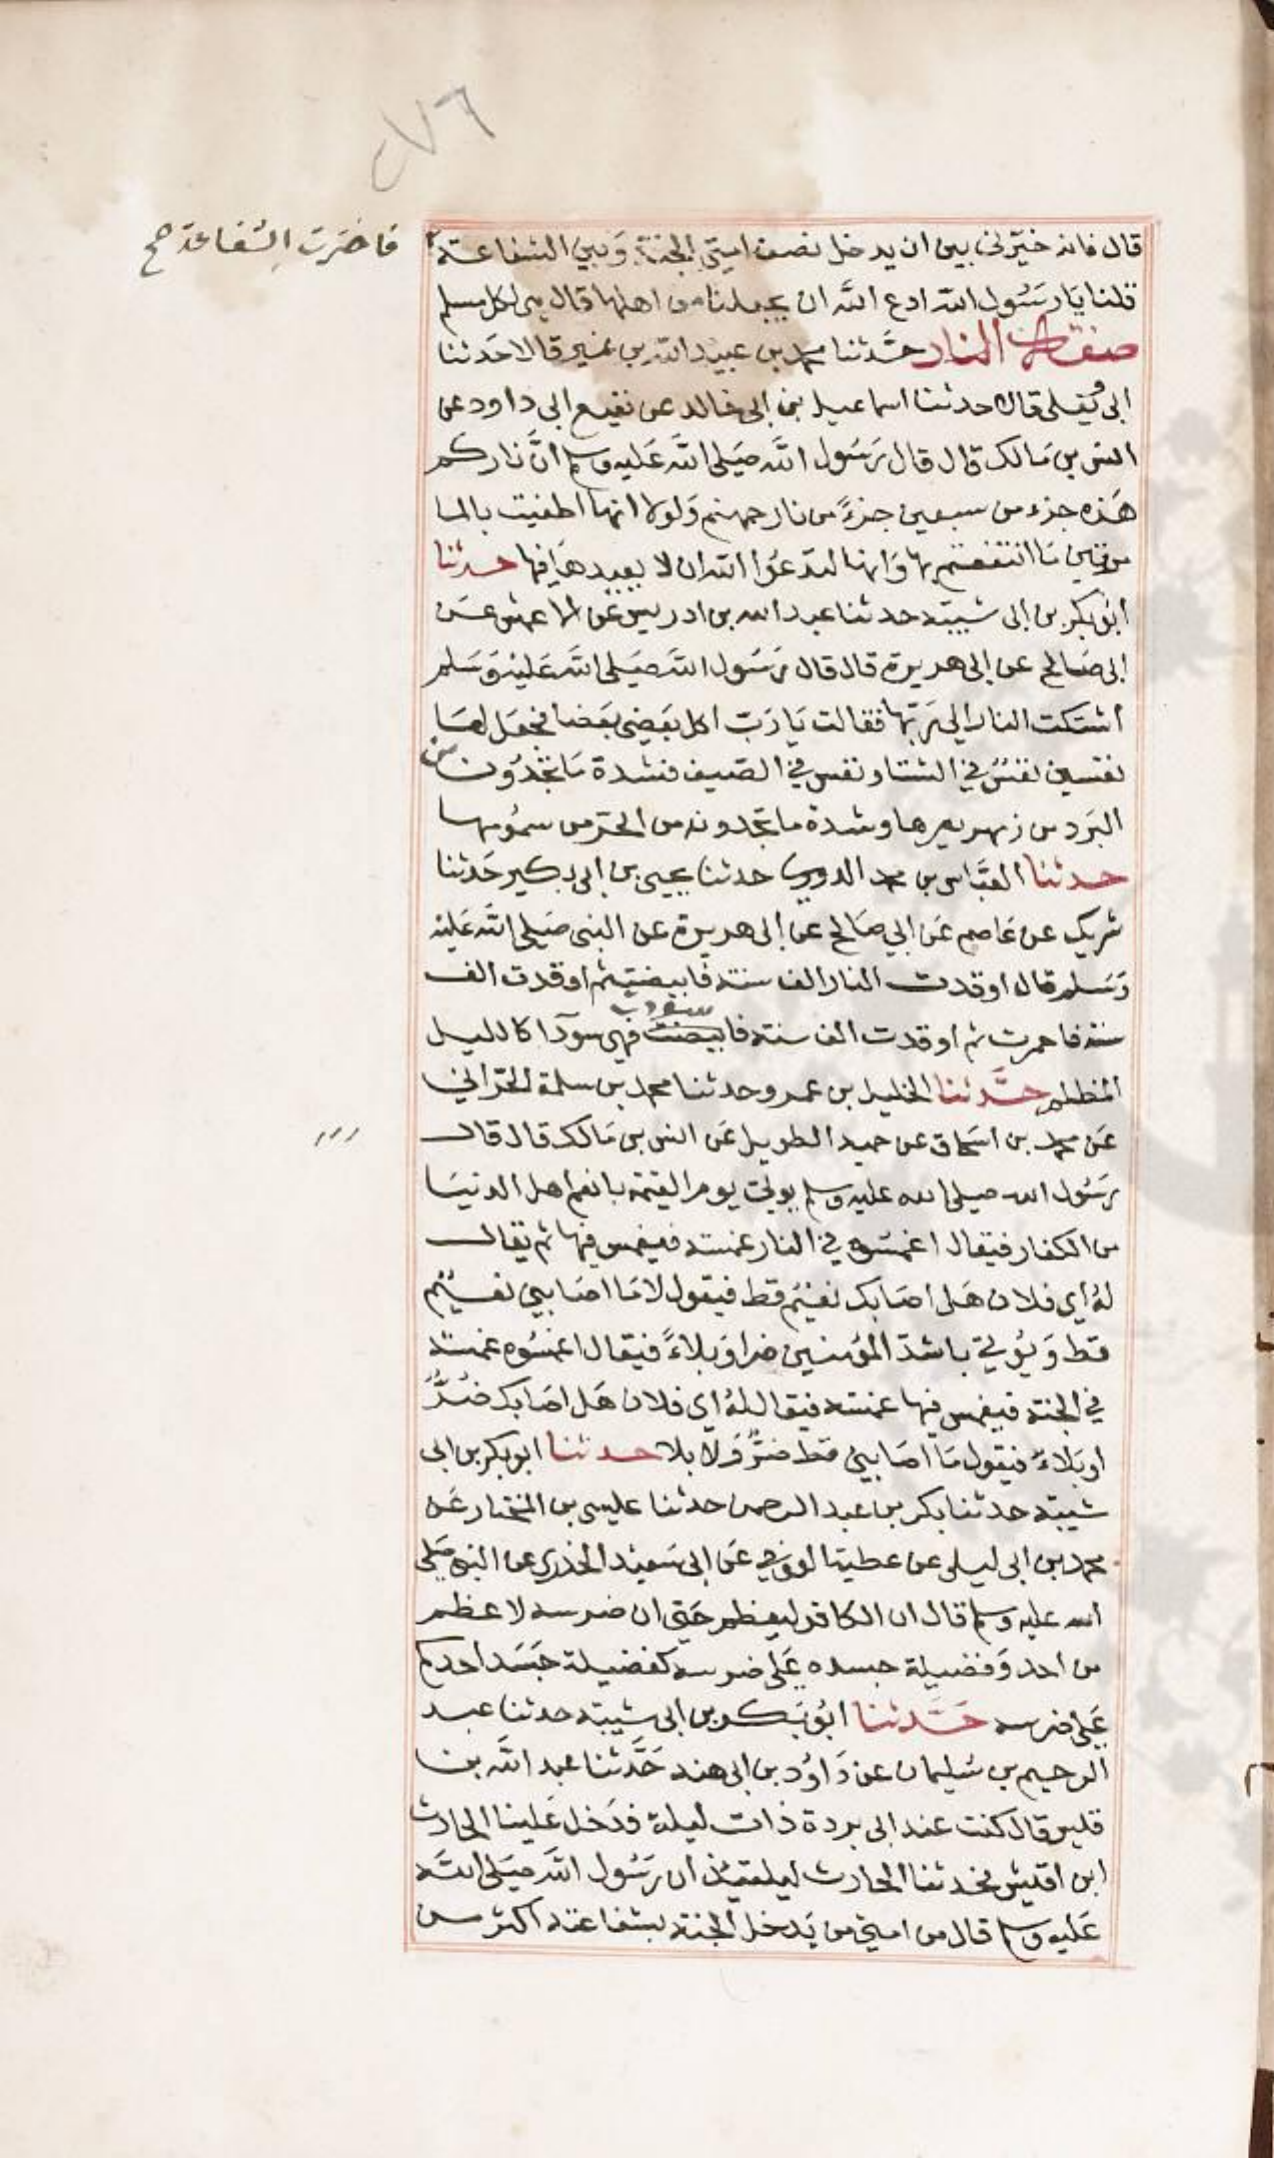 ٢٧٦
قال فانه خيّرني بين ان يدخل نصف امتي الجنة وَبين الشفاعة
فاخترت الشفاعة صح
قلنا يَا رسُول الله ادع الله ان يجعلنا من اهلها قال هى لكل مسلم
صفة النار حدَّثنا محمد بن عبيد الله بن نمير قالا حَدثنا
ابى ويَعلى قالا حدثنا اسماعيل بن ابى خالد عن نفيع ابى داود عن
انس بن مَالك قال قال رَسُول الله صَلى الله عَليه وسلم انَّ ناركم
هَذه جزء من سبعين جزءً من نار جهنم وَلولا انها اطفيت بالما
مرتين مَا انتفعتم بها وَانها لتدعُوا الله ان لا يعيدهَا فيها حدثنا
ابُو بكر بن ابى شيبة حدثنا عبد الله بن ادريس عن الاعمش عَن
ابى صَالح عن ابى هريرة قال قال رَسُول الله صَلى الله عَليه وَسَلم
اشتكت النار الى رَبّها فقالت يَا رَبّ اكل بَعضى بَعضا فجعَل لهَا
نفسين نفسٌ في الشتا ونفس في الصَيف فشدة مَا تجدُون من
البَرد من زمهريرها وشدة ما تجدونه من الحَر من سمُومها
حدثنا العبَّاس بن محمد الدورى حدثنا يحيى بن ابى بكير حَدثنا
شريك عن عَاصم عَن ابي صَالح عن ابى هريرة عن النبى صَلى الله عَليه
وَسَلم قال اوقدت النار الف سنة فابيضت ثم اوقدت الف
سنة فاحمرت ثم اوقدت الف سنة فابيضت فهى سَودآ كالليل
اسودت
المظلم حدَّثنا الخليل بن عمرو حدثنا محمد بن سلمة الحَرّاني
عَن محمد بن اسحَاق عن حميد الطويل عَن انس بن مَالك قال قال
رَسُول الله صلى الله عليه وسلم يوتى يوم القيمة بانعم اهل الدنيَا
من الكفار فيقال اغمسُوه في النار غمسة فيغمس فيها ثم يقال
لهُ اي فلان هَل اصَابك نعيْم قط فيقول لا مَا اصَابني نعيْم
قط وَيُوتى باشدّ المؤمنين ضرا وَبلاءً فيقال اغمسُوه غمسة
في الجنة فيغمس فيها غمسة فيقال لهُ اى فلان هَل اصَابك ضُرٌّ
او بَلاءٌ فيقول مَا اصَابني قط ضرٌّ وَلا بلا حدثنا ابو بكر بن ابى
شيبة حدثنا بكر بن عبد الرحمن حدثنا عيسى بن المختار عَن
محمد بن ابى ليلى عن عطية العوفي عَن ابى سَعيْد الخذرى عن النبى صَلى
الله عليه وسلم قال ان الكافر ليعظم حَتى ان ضرسه لاعظم
من احد وَفضيلة جسده عَلى ضرسه كفضيلة جَسَد احدكم
عَلى ضرسه حَدَّثنا ابُو بَكر بن ابى شيبة حدثنا عبد
الرحيم بن سُليمان عن دَاوُد بن ابى هند حَدَّثنا عبد الله بن
قليس قال كنت عند ابى بردة ذات ليلة فدَخل عَلينا الحارث
ابن اقيش فحدثنا الحارث ليلتئذ ان رَسُول الله صَلى الله
عَليه وسلم قال من امتي من يَدخل الجنة بشفاعته اكثر من